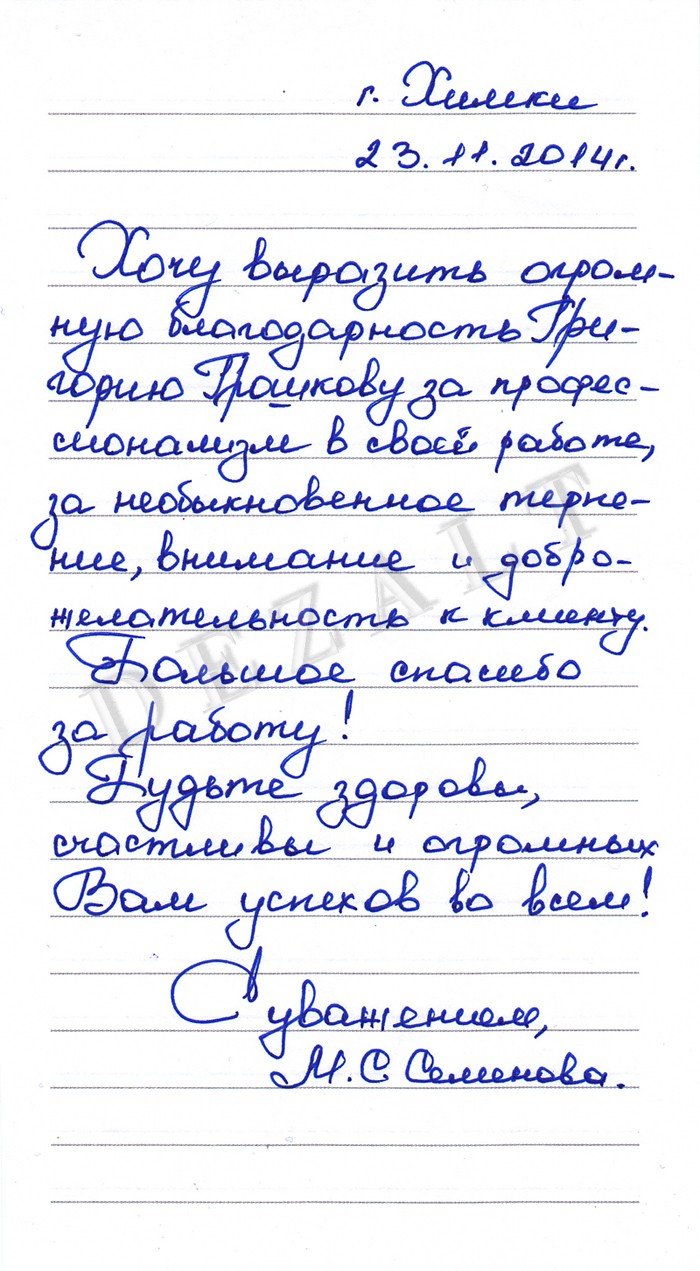 г. Химки
23.11.2014г.
Хочу выразить огром-
ную благодарность Гри-
горию Грашкову за профес-
сионализм в своей работе,
за необыкновенное терпе-
ние, внимание и добро-
желательность к клиенту.
Большое спасибо
за работу!
Будьте здоровы,
счастливы и огромных
Вам успехов во всем!
С уважением,
М.С. Семенова.
DEZALT